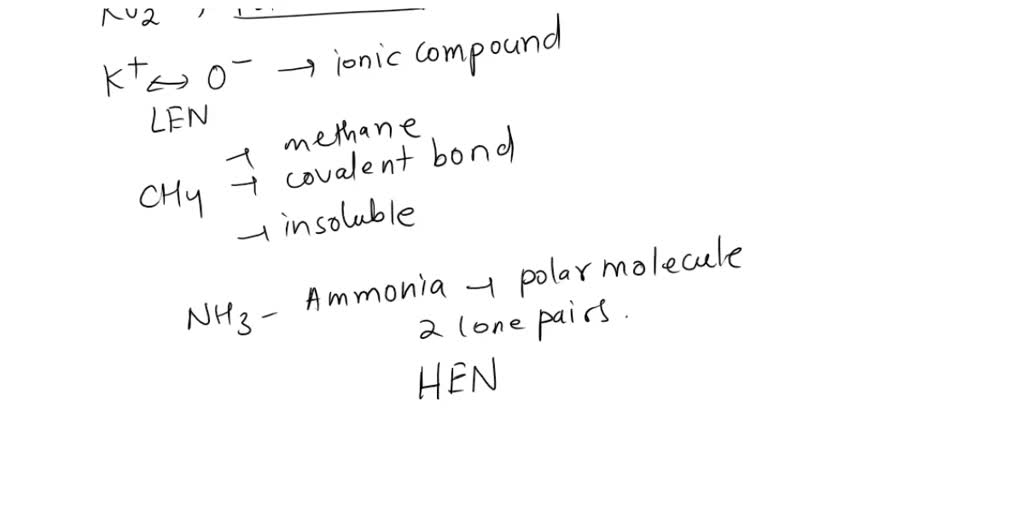 K+ ↔ O- → ionic compound
LEN
→ methane
CH4 → covalent bond
→ insoluble
NH3 - Ammonia → polar molecule
2 lone pairs.
HEN